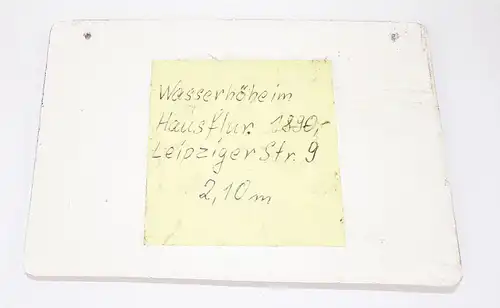 Wasserhöheim
Hausflur. 1890,-
Leipziger Str. 9
2,10m